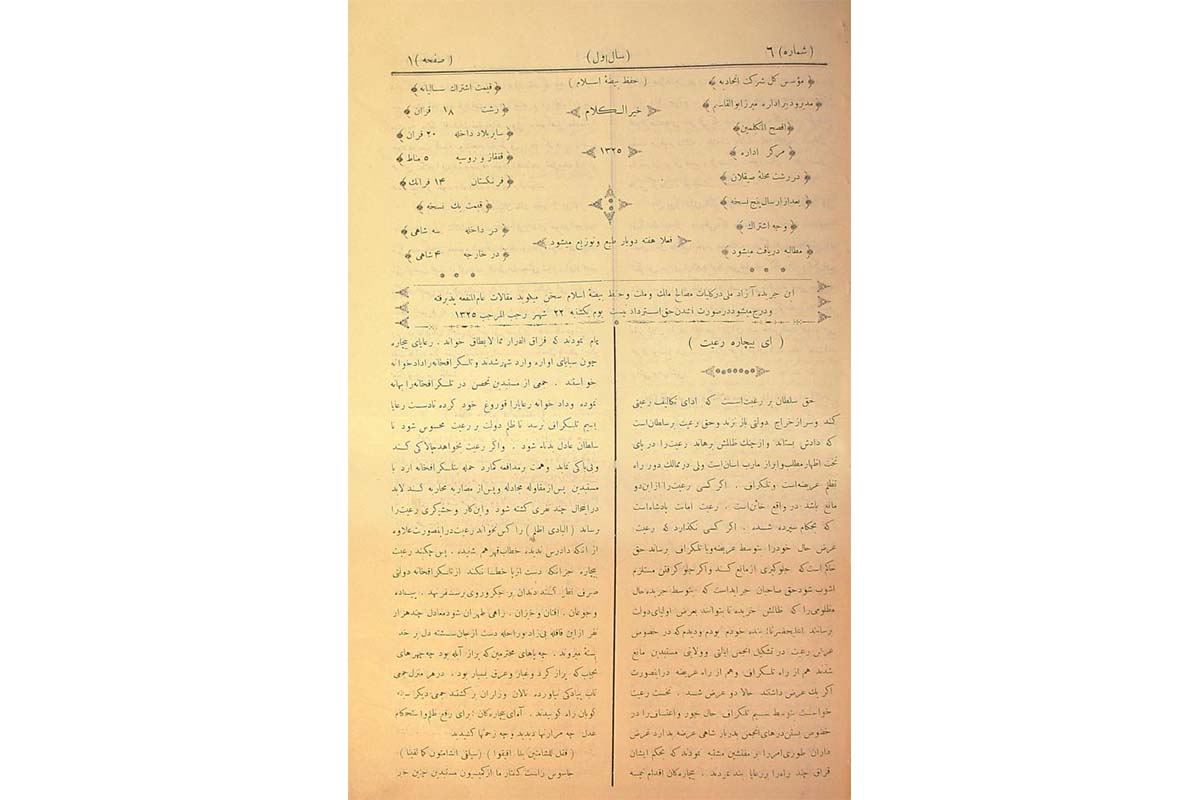 (شماره) ۶
(سال اول)
(صفحه) ۱
مؤسس کل شرکت اتحادیه
مدیر و دبیر اداره میرزا ابوالقاسم
افصح المتکلمین
مرکز اداره
در رشت محلهٔ صیقلان
بعد از ارسال پنج نسخه
وجه اشتراک
مطالبه دریافت میشود
(حفظ بیضهٔ اسلام)
خیر الکلام
۱۳۲۵
فعلا هفته دوبار طبع و توزیع میشود
قیمت اشتراک سالیانه
رشت ۱۸ قران
سایر بلاد داخله ۲۰ قران
قفقاز و روسیه ۵ مناط
فرنگستان ۱۴ فرانک
قیمت یک نسخه
در داخله سه شاهی
در خارجه ۴ شاهی
این جریده آزاد ملی در کلیات مصالح ملک و ملت و حفظ بیضهٔ اسلام سخن میگوید مقالات عام المنفعه پذیرفته
و درج میشود در صورت نشدن حق استرداد نیست یوم یکشنبه ۲۲ شهر رجب المرجب ۱۳۲۵
(ای بیچاره رعیت)
حق سلطان بر رعیت است که ادای تکالیف رعیتی
کند و سر از خراج دولتی باز نزند و حق رعیت بر سلطان است
که دادش بستاند و از چنک ظالمش برهاند رعیت را در پای
تخت اظهار مطلب و ابراز مارب اسان است ولی در ممالک دور راه
تظلم عریضه است و تلکراف . اکر کسی رعیت را از این دو
مانع باشد در واقع خائن است . رعیت امانت پادشاه است
که بحکام سپرده شده . اکر کسی نکذارد که رعیت
عرض حال خود را بتوسط عریضه و یا تلکراف برساند حق
حاکم است که جلوکیری از مانع کند و اکر جلو کرفتن مستلزم
اشوب شود حق صاحبان جراید است که بتوسط جریده حال
مظلومی را که ظالمش خزیده تا بتوانند بعرض اولیای دولت
برسانند بنده خودم بودم و دیدم که در خصوص
عرایض رعیت در تشکیل انجمن ایالتی و ولایتی مستبدین مانع
شدند هم از راه تلکراف وهم از راه عریضه در اینصورت
اکر یک عرض داشتند حالا دو عرض شد . نخست رعیت
خواست بتوسط سیم تلکراف حال جور و اعتساف را در
خصوص بستن درهای انجمن بدربار شاهی عرضه بدارد غرض
داران طوری امر را بر مفتشین مشتبه نمودند که بحکم ایشان
قزاق چند راه را بر رعایا بند نمودند . بیچاره کان اقدام نیمه
تمام نمودند که فراق الفرار مما لایطاق خواند . رعایای بیچاره
چون سبایای اواره وارد شهر شدند و تلکرافخانه را دادخوانه
خواستند . جمعی از مستبدین تحصن در تلکرافخانه را بهانه
نموده و دادخوانه رعایا را قوروغ خود کرده تا دست رعایا
بسیم تلکراف نرسد تا ظلم دولت بر رعیت محسوس شود تا
سلطان عادل بدنام شود . و اکر رعیت بخواهد چالاکی کند
و بی باکی نماید و همت بر مدافعه کمارد حمله بتلکرافخانه ارد با
مستبدین پس از مقاوله مجادله و پس از مضاربه محاربه کند لابد
در اینحال چند نفری کشته شود و این کار وحشیکری رعیت را
برساند (البادی اظلم) را کس نخواند رعیت در اینصورت علاوه
از انکه دادرس ندیده خطاب قهر هم شنیده . پس چکند رعیت
بیچاره جز انکه دست از پا خطا نکند از تلکرافخانه دولتی
صرف نظر کند دندان بر جکر و روی بر سفر نهد . پیاده
وجوعان . افتان و خیزان . راهی طهران شود معادل چند هزار
نفر از این قافله بی زاد و راحله دست از جان شسته دل بر خدا
بسته میروند . چه پاهای محترمین که پر از آبله بود چه چهرهای
نجیب که پر از کرد و غبار و عرق بسیار بود . در هر منزل جمعی
تاب پیادکی نیاورده نالان و زاران برکشتند جمعی دیکر
کوبان راه کوبیدند . آه ای بیچاره کان ؛ برای رفع ظلم و استحکام
عدل چه مرارتها دیدید و چه زحمتها کشیدید
(فقل للشامتین بنا افیقوا) (سیلقی الشامتون کما لقینا)
جاسوس راست کفتار ما از کمیسیون مستبدین چنین خبر